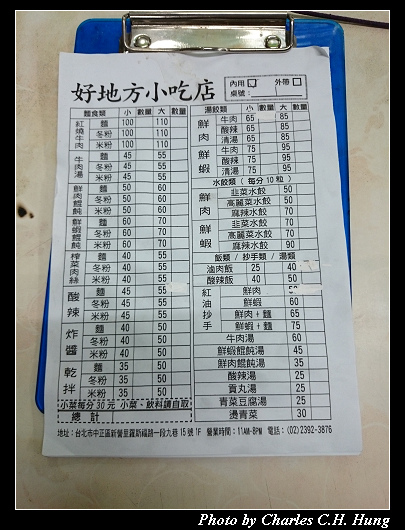 好地方小吃店
內用 ☑ 外帶 □
桌號:
麵食類 小 數量 大 數量
紅燒牛肉 麵 100 110
冬粉 100 110
米粉 100 110
牛肉湯 麵 45 55
冬粉 45 55
米粉 45 55
鮮肉餛飩 麵 50 60
冬粉 50 60
米粉 50 60
鮮蝦餛飩 麵 60 70
冬粉 60 70
米粉 60 70
榨菜肉絲 麵 45 55
冬粉 45 55
米粉 45 55
酸辣 麵 45 55
冬粉 45 55
米粉 45 55
炸醬 麵 40 50
冬粉 40 50
米粉 40 50
乾拌 麵 35 50
冬粉 35 50
米粉 35 50
小菜每分30元 小菜、飲料請自取
總 計
湯餃類 小 數量 大 數量
鮮肉 牛肉 65 85
酸辣 65 85
清湯 65 85
鮮蝦 牛肉 75 95
酸辣 75 95
清湯 75 95
水餃類 (每分10粒)
鮮肉 韭菜水餃 50
高麗菜水餃 50
麻辣水餃 70
鮮蝦 韭菜水餃 70
高麗菜水餃 70
麻辣水餃 90
飯類/抄手類/湯類
滷肉飯 25 40
酸辣飯 40 50
紅油抄手 鮮肉
鮮蝦 60
鮮肉+麵 65
鮮蝦+麵 75
牛肉湯 60
鮮蝦餛飩湯 45
鮮肉餛飩湯 35
酸辣湯 25
貢丸湯 25
青菜豆腐湯 25
燙青菜 30
地址:台北市中正區新營里羅斯福路一段九巷15號1F 營業時間:11AM-8PM 電話:(02)2392-3876
Photo by Charles C.H. Hung